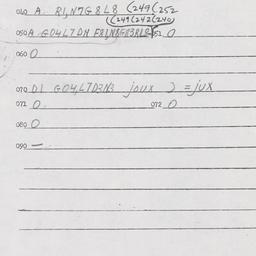 040 A R1,N7G8L8 (249(252
((249(242(240)
050 A G04L7DN F81N8G83R18 52 0
060 0
070 D1 G04,L7D3N3 joux ) = jux
071 0 072 0
080 0
090 —